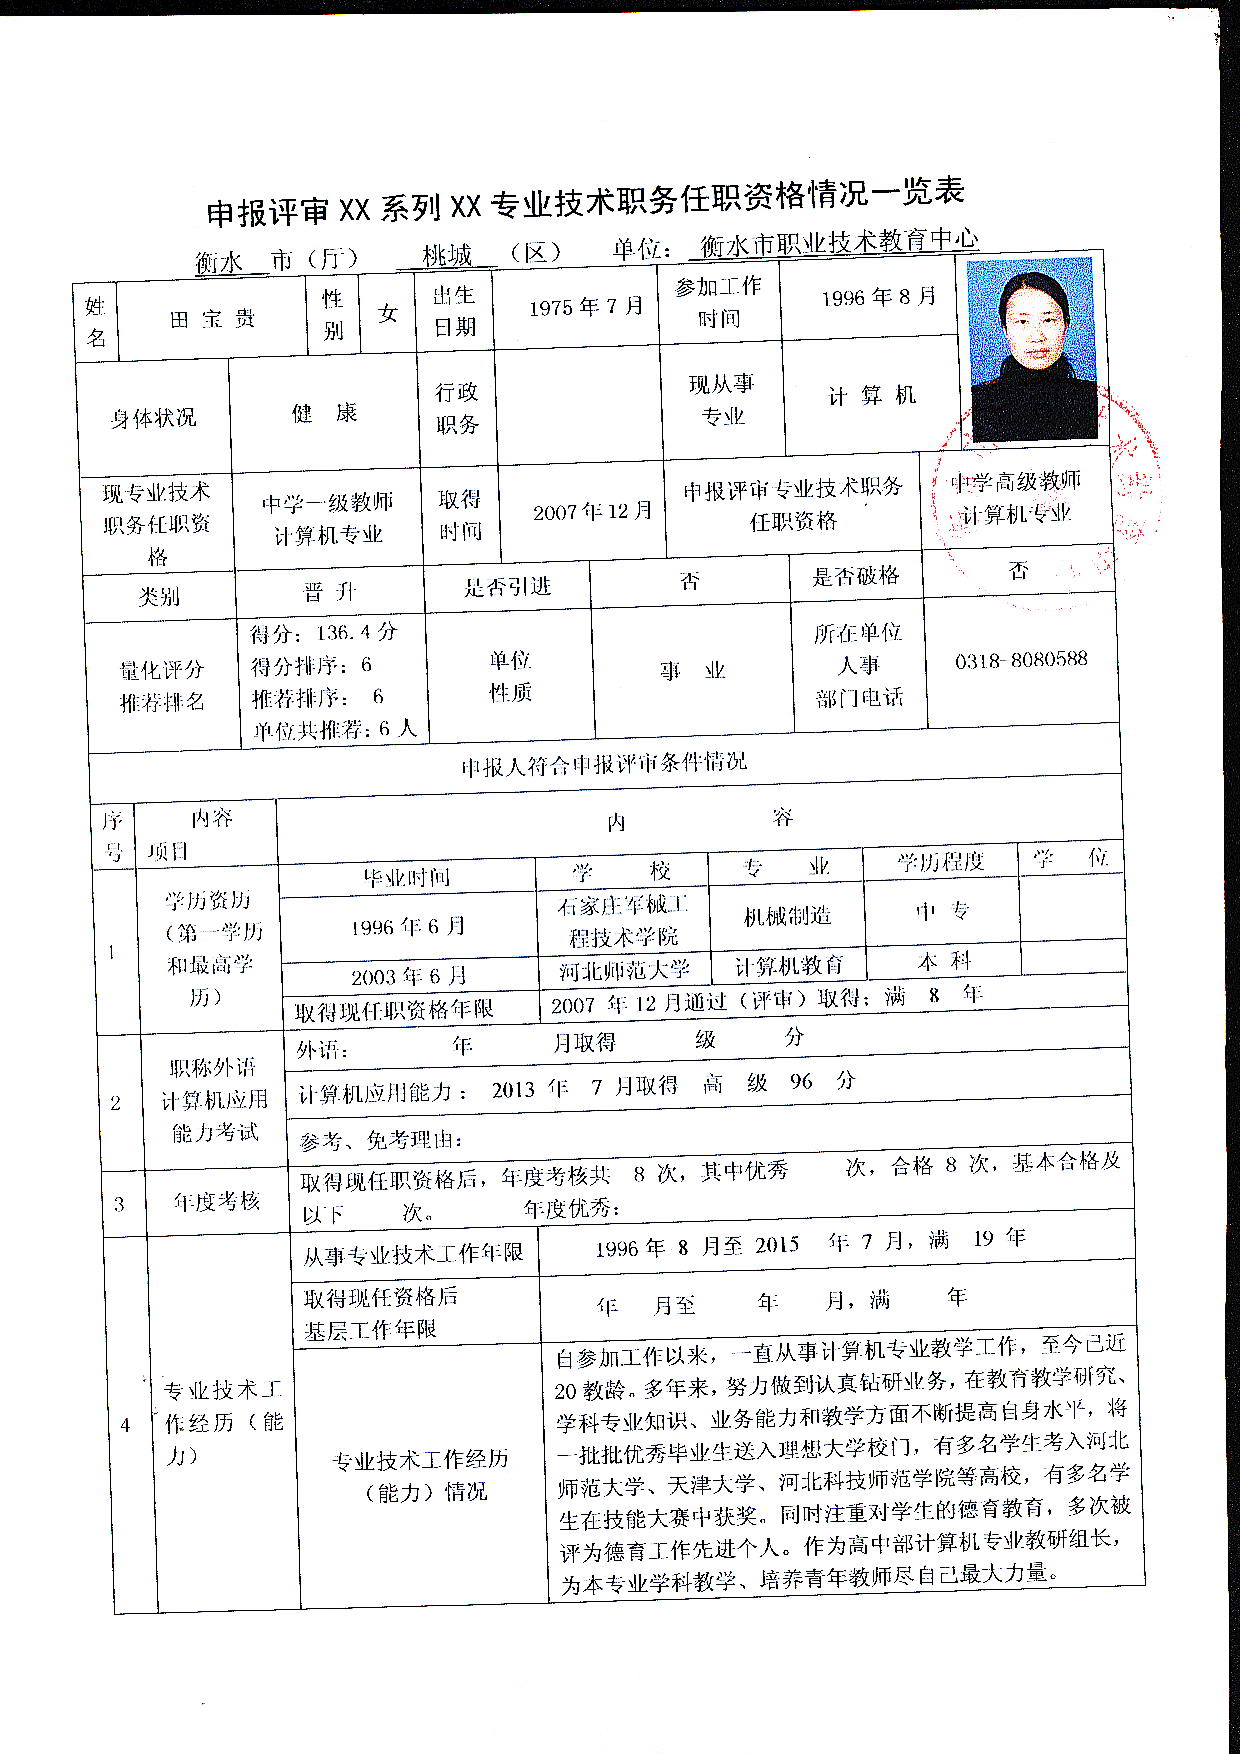 申报评审 XX 系列 XX 专业技术职务任职资格情况一览表
衡水 市（厅） 桃城 （区） 单位： 衡水市职业技术教育中心
姓名 田 宝 贵 性别 女 出生日期 1975 年 7 月 参加工作时间 1996 年 8 月
身体状况 健 康 行政职务 现从事专业 计 算 机
现专业技术职务任职资格 中学一级教师计算机专业 取得时间 2007 年 12 月 申报评审专业技术职务任职资格 中学高级教师计算机专业
类别 晋 升 是否引进 否 是否破格 否
量化评分推荐排名
得分：136.4 分
得分排序：6
推荐排序： 6
单位共推荐：6 人
单位性质 事 业 所在单位人事部门电话 0318-8080588
申报人符合申报评审条件情况
序号 内容 项目 内 容
1 学历资历（第一学历和最高学历）
毕业时间 学 校 专 业 学历程度 学 位
1996 年 6 月 石家庄军械工程技术学院 机械制造 中 专
2003 年 6 月 河北师范大学 计算机教育 本 科
取得现任职资格年限 2007 年 12 月通过（评审）取得；满 8 年
2 职称外语计算机应用能力考试
外语： 年 月取得 级 分
计算机应用能力： 2013 年 7 月取得 高 级 96 分
参考、免考理由：
3 年度考核
取得现任职资格后，年度考核共 8 次，其中优秀 次，合格 8 次，基本合格及
以下 次。 年度优秀：
4 专业技术工作经历（能力）
从事专业技术工作年限 1996 年 8 月至 2015 年 7 月，满 19 年
取得现任资格后基层工作年限 年 月至 年 月，满 年
专业技术工作经历（能力）情况
自参加工作以来，一直从事计算机专业教学工作，至今已近
20 教龄。多年来，努力做到认真钻研业务，在教育教学研究、
学科专业知识、业务能力和教学方面不断提高自身水平，将
一批批优秀毕业生送入理想大学校门，有多名学生考入河北
师范大学、天津大学、河北科技师范学院等高校，有多名学
生在技能大赛中获奖。同时注重对学生的德育教育，多次被
评为德育工作先进个人。作为高中部计算机专业教研组长，
为本专业学科教学、培养青年教师尽自己最大力量。